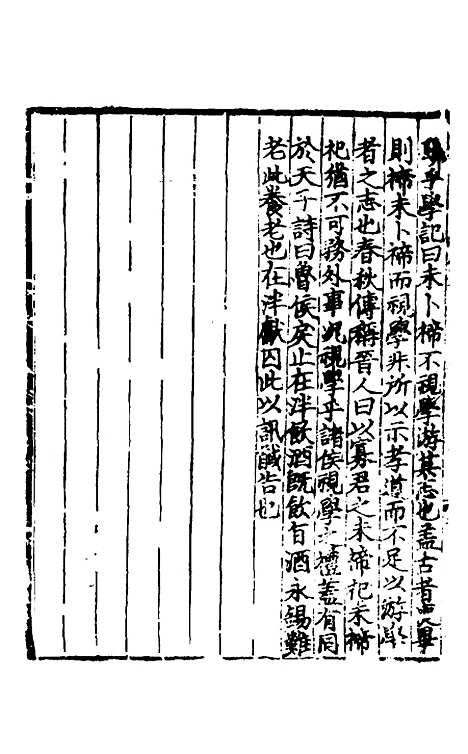 乎學記曰未卜禘不視學游其志也蓋古者
則禘未卜禘而視學非所以示孝道而不足以游學
者之志也春秋傳稱晉人曰以寡君之未禘祀未禘
祀猶不可務外事況視學乎諸侯視學之禮蓋有同
於天子詩曰魯侯戾止在泮飲酒既飲旨酒永錫難
老此養老也在泮獻囚此以訊馘告也